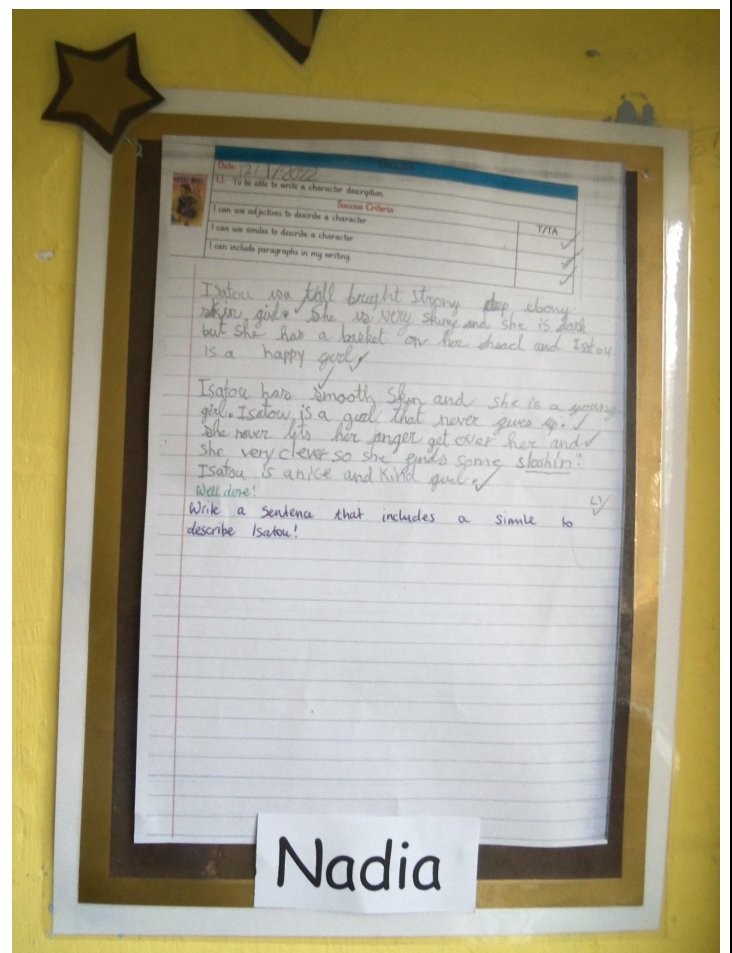 English
Date: 12/1/2022
LI: To be able to write a character description.
Success Criteria
T/TA
I can use adjectives to describe a character
I can use similes to describe a character
I can include paragraphs in my writing
Isatou is a tall bright strong ebony
skin girl. She is very and she is dark
but she has a basket on her head and Isatou
is a happy girl.
Isatou has smooth skin and she is a young
girl. Isatou is a girl that never gives up.
She never lets her anger get over her and
she very clever so she finds some sloshin.
Isatou is a nice and kind girl.
Well done!
Write a sentence that includes a simile to
describe Isatou!
Nadia